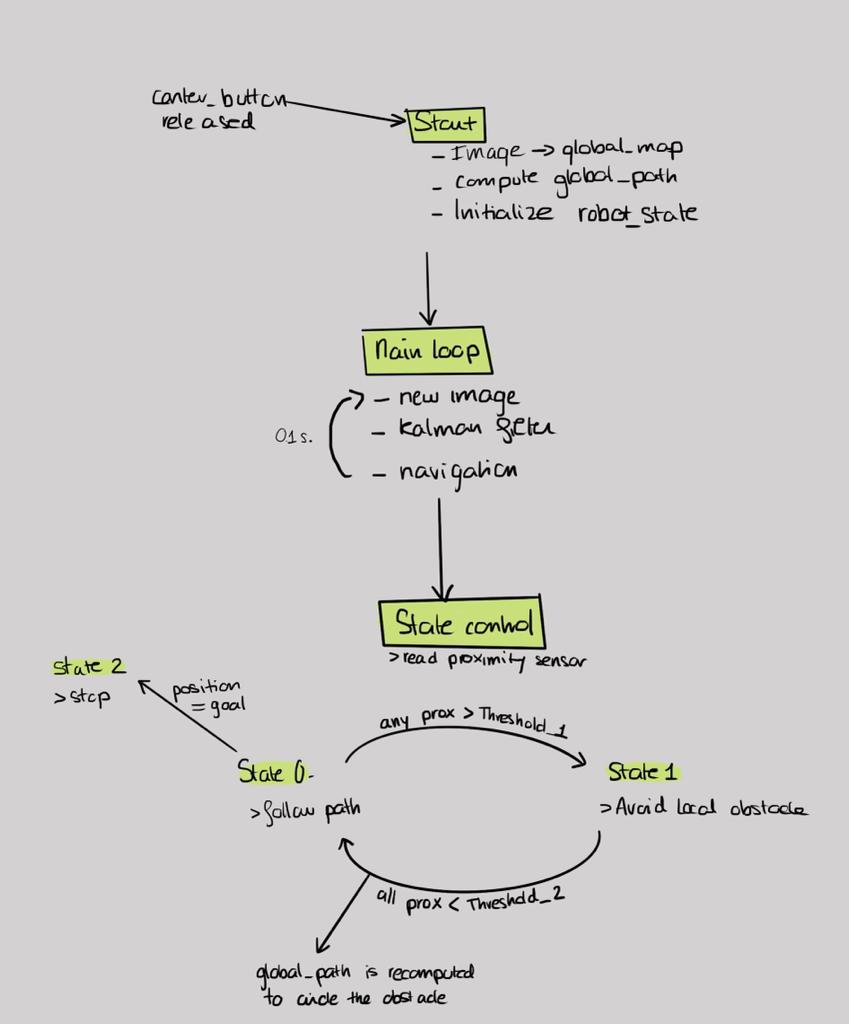 center_button
released
Start
- Image → global_map
- compute global_path
- Initialize robot_state
Main loop
- new image
- kalman filter
01s.
- navigation
State control
> read proximity sensor
State 2
> stop
position
= goal
any prox > Threshold_1
State 0.
> follow path
State 1
> Avoid local obstacle
all prox < Threshold_2
global_path is recomputed
to circle the obstacle